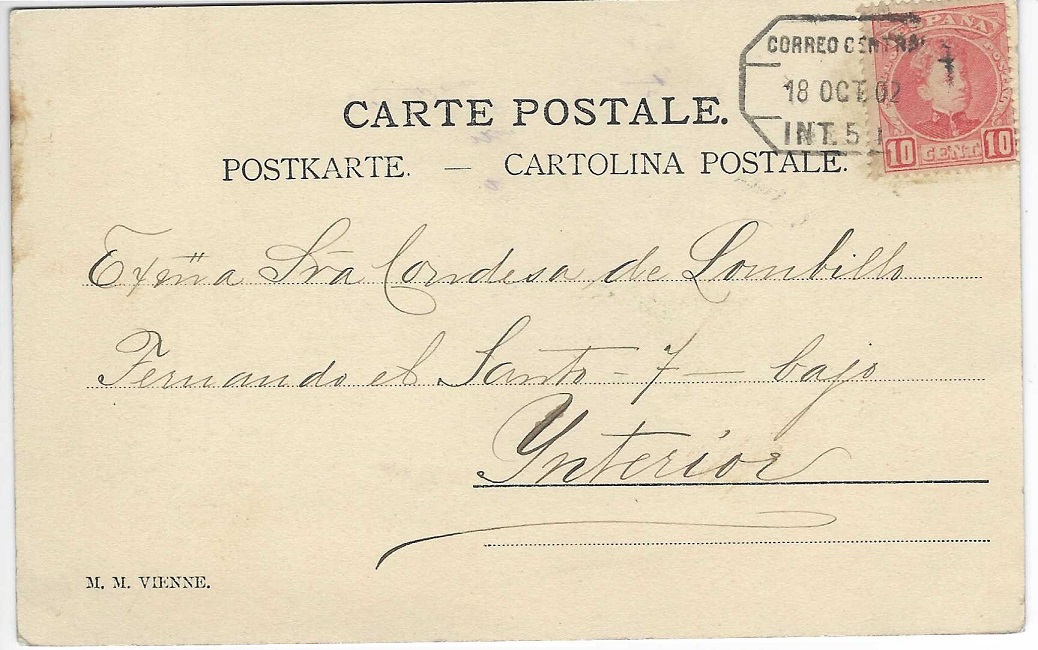 CORREO CENTRAL
18 OCT. 02
INT. 5
ESPAÑA
10 CENT. 10
CARTE POSTALE.
POSTKARTE. — CARTOLINA POSTALE.
Exm̈a Sra Condesa de Lombillo
Fernando el Santo - 7 — bajo
Ynterior
M. M. VIENNE.